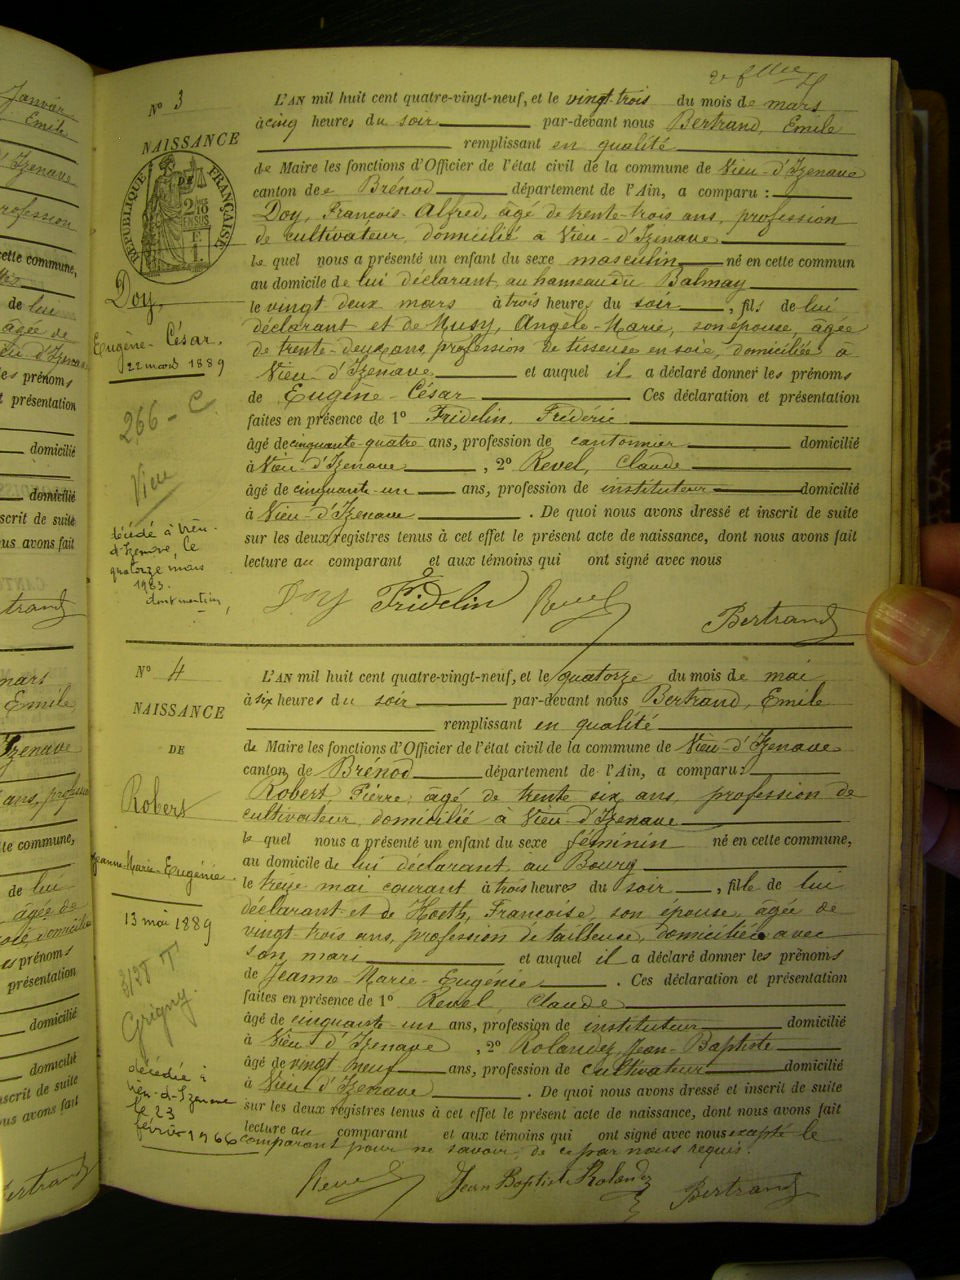 N° 3
NAISSANCE
DE
RÉPUBLIQUE FRANÇAISE
Doy,
Eugène-César.
22 mars 1889
266 - C
Vieu
décédé à Vieu-
d-Izenave, le
quatorze mars
1963.
dont mention
L'AN mil huit cent quatre-vingt-neuf, et le vingt-trois du mois de mars
à cinq heures du soir par-devant nous Bertrand, Emile
remplissant en qualité
de Maire les fonctions d'Officier de l'état civil de la commune de Vieu-d'Izenave
canton de Brénod département de l'Ain, a comparu :
Doy, François-Alfred, âgé de trente-trois ans, profession
de cultivateur, domicilié à Vieu-d'Izenave
le quel nous a présenté un enfant du sexe masculin né en cette commun
au domicile de lui déclarant, au hameau du Balmay
le vingt deux mars à trois heures du soir, fils de lui
déclarant et de Musy, Angèle-Marie, son épouse, âgée
de trente-deux ans, profession de tisseuse en soie, domiciliée à
Vieu d'Izenave et auquel il a déclaré donner les prénoms
de Eugène-César Ces déclaration et présentation
faites en présence de 1° Fridelin, Frédéric
âgé de cinquante-quatre ans, profession de cantonnier domicilié
à Vieu-d'Izenave, 2° Revel, Claude
âgé de cinquante-un ans, profession de instituteur domicilié
à Vieu-d'Izenave. De quoi nous avons dressé et inscrit de suite
sur les deux registres tenus à cet effet le présent acte de naissance, dont nous avons fait
lecture au comparant et aux témoins qui ont signé avec nous
Doy Fridelin Revel Bertrand
N° 4
NAISSANCE
DE
Robert
Jeanne-Marie-Eugénie.
13 mai 1889
Grigny.
décédée à
Vieu-d-Izenave
le 23
février 1966
L'AN mil huit cent quatre-vingt-neuf, et le quatorze du mois de mai
à six heures du soir par-devant nous Bertrand, Emile
remplissant en qualité
de Maire les fonctions d'Officier de l'état civil de la commune de Vieu-d'Izenave
canton de Brénod département de l'Ain, a comparu :
Robert Pierre, âgé de trente six ans, profession de
cultivateur, domicilié à Vieu-d'Izenave
le quel nous a présenté un enfant du sexe féminin né en cette commune,
au domicile de lui déclarant au Bourg
le treize mai courant à trois heures du soir, fille de lui
déclarant et de Françoise, son épouse, âgée de
vingt trois ans, profession de tailleuse, domiciliée avec
son mari et auquel il a déclaré donner les prénoms
de Jeanne-Marie-Eugénie. Ces déclaration et présentation
faites en présence de 1° Revel, Claude
âgé de cinquante un ans, profession de instituteur domicilié
à Vieu d'Izenave, 2° Rolandez, Jean-Baptiste
âgé de vingt neuf ans, profession de cultivateur domicilié
à Vieu d'Izenave. De quoi nous avons dressé et inscrit de suite
sur les deux registres tenus à cet effet le présent acte de naissance, dont nous avons fait
lecture au comparant et aux témoins qui ont signé avec nous excepté le
comparant pour ne savoir, de ce par nous requis.
Revel Jean Baptiste Rolandez Bertrand